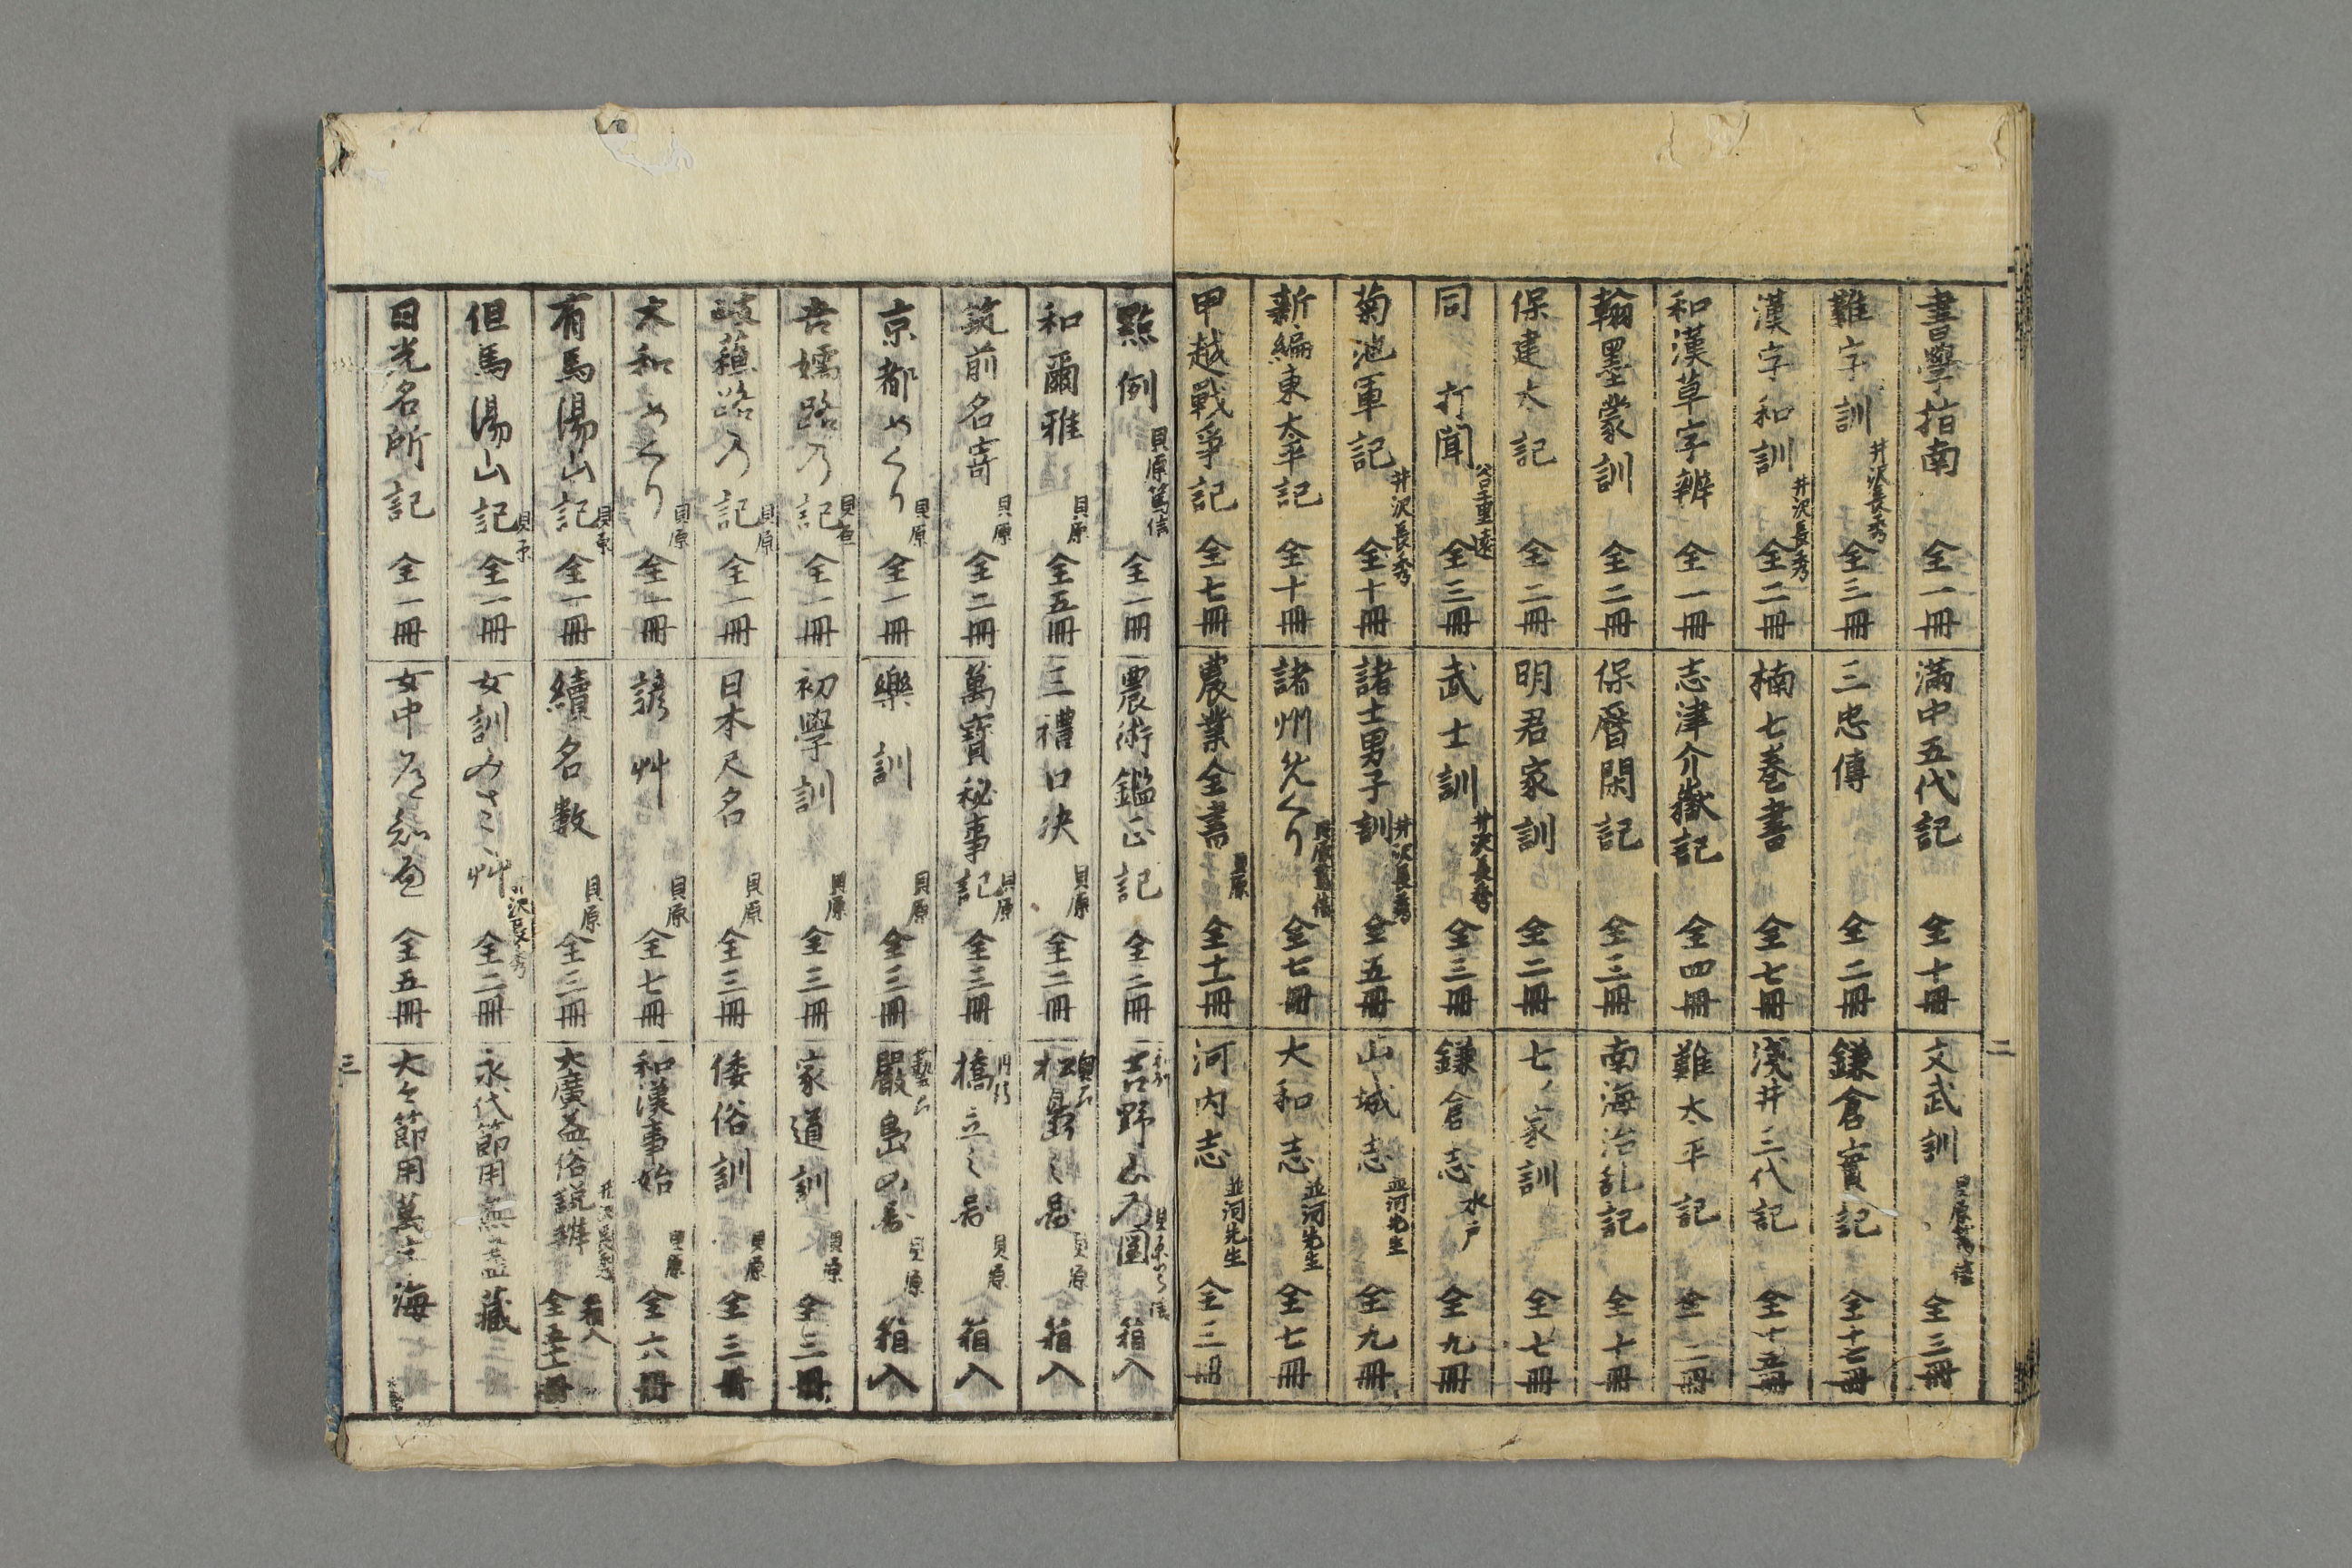 書學指南 全一冊
難字訓 井沢長秀 全三冊
漢字和訓 井沢長秀 全二冊
和漢草字辨 全一冊
翰墨蒙訓 全二冊
保建大記 全二冊
同 打聞 谷重遠 全三冊
菊池軍記 井沢長秀 全十冊
新編東太平記 全十冊
甲越戰爭記 全七冊
滿中五代記 全十冊
三忠傳 全二冊
楠七巻書 全七冊
志津介嶽記 全四冊
保暦間記 全三冊
明君家訓 全二冊
武士訓 井沢長秀 全三冊
諸士男子訓 井沢長秀 全五冊
諸州めくり 貝原篤信 全七冊
農業全書 貝原 全十一冊
文武訓 貝原篤信 全三冊
鎌倉實記 全十七冊
淺井三代記 全十五冊
難太平記 全二冊
南海治乱記 全十冊
七ノ家訓 全七冊
鎌倉志 水戸 全九冊
山城志 並河先生 全九冊
大和志 並河先生 全七冊
河内志 並河先生 全三冊
二
點例 貝原篤信 全一冊
和爾雅 貝原 全五冊
筑前名寄 貝原 全二冊
京都めくり 貝原 全一冊
吾嬬路乃記 貝原 全一冊
岐蘓路乃記 貝原 全一冊
大和めくり 貝原 全一冊
有馬湯山記 貝原 全一冊
但馬湯山記 貝原 全一冊
日光名所記 全一冊
農術鑑正記 全二冊
三禮口决 貝原 全二冊
萬寳秘事記 貝原 全三冊
樂訓 貝原 全三冊
初學訓 貝原 全三冊
日本尺名 貝原 全三冊
諺艸 貝原 全七冊
續名数 貝原 全三冊
女訓みさこ艸 井沢長秀 全二冊
女中 全五冊
吉野山乃圖 箱入
松島之啚 貝原 箱入
橋立之啚 貝原 箱入
嚴島の啚 貝原 箱入
家道訓 貝原 全三冊
倭俗訓 貝原 全三冊
和漢事始 貝原 全六冊
大廣益俗説辨 井沢長秀 箱入 全五十一冊
永代節用無盡藏
大々節用萬字海
三